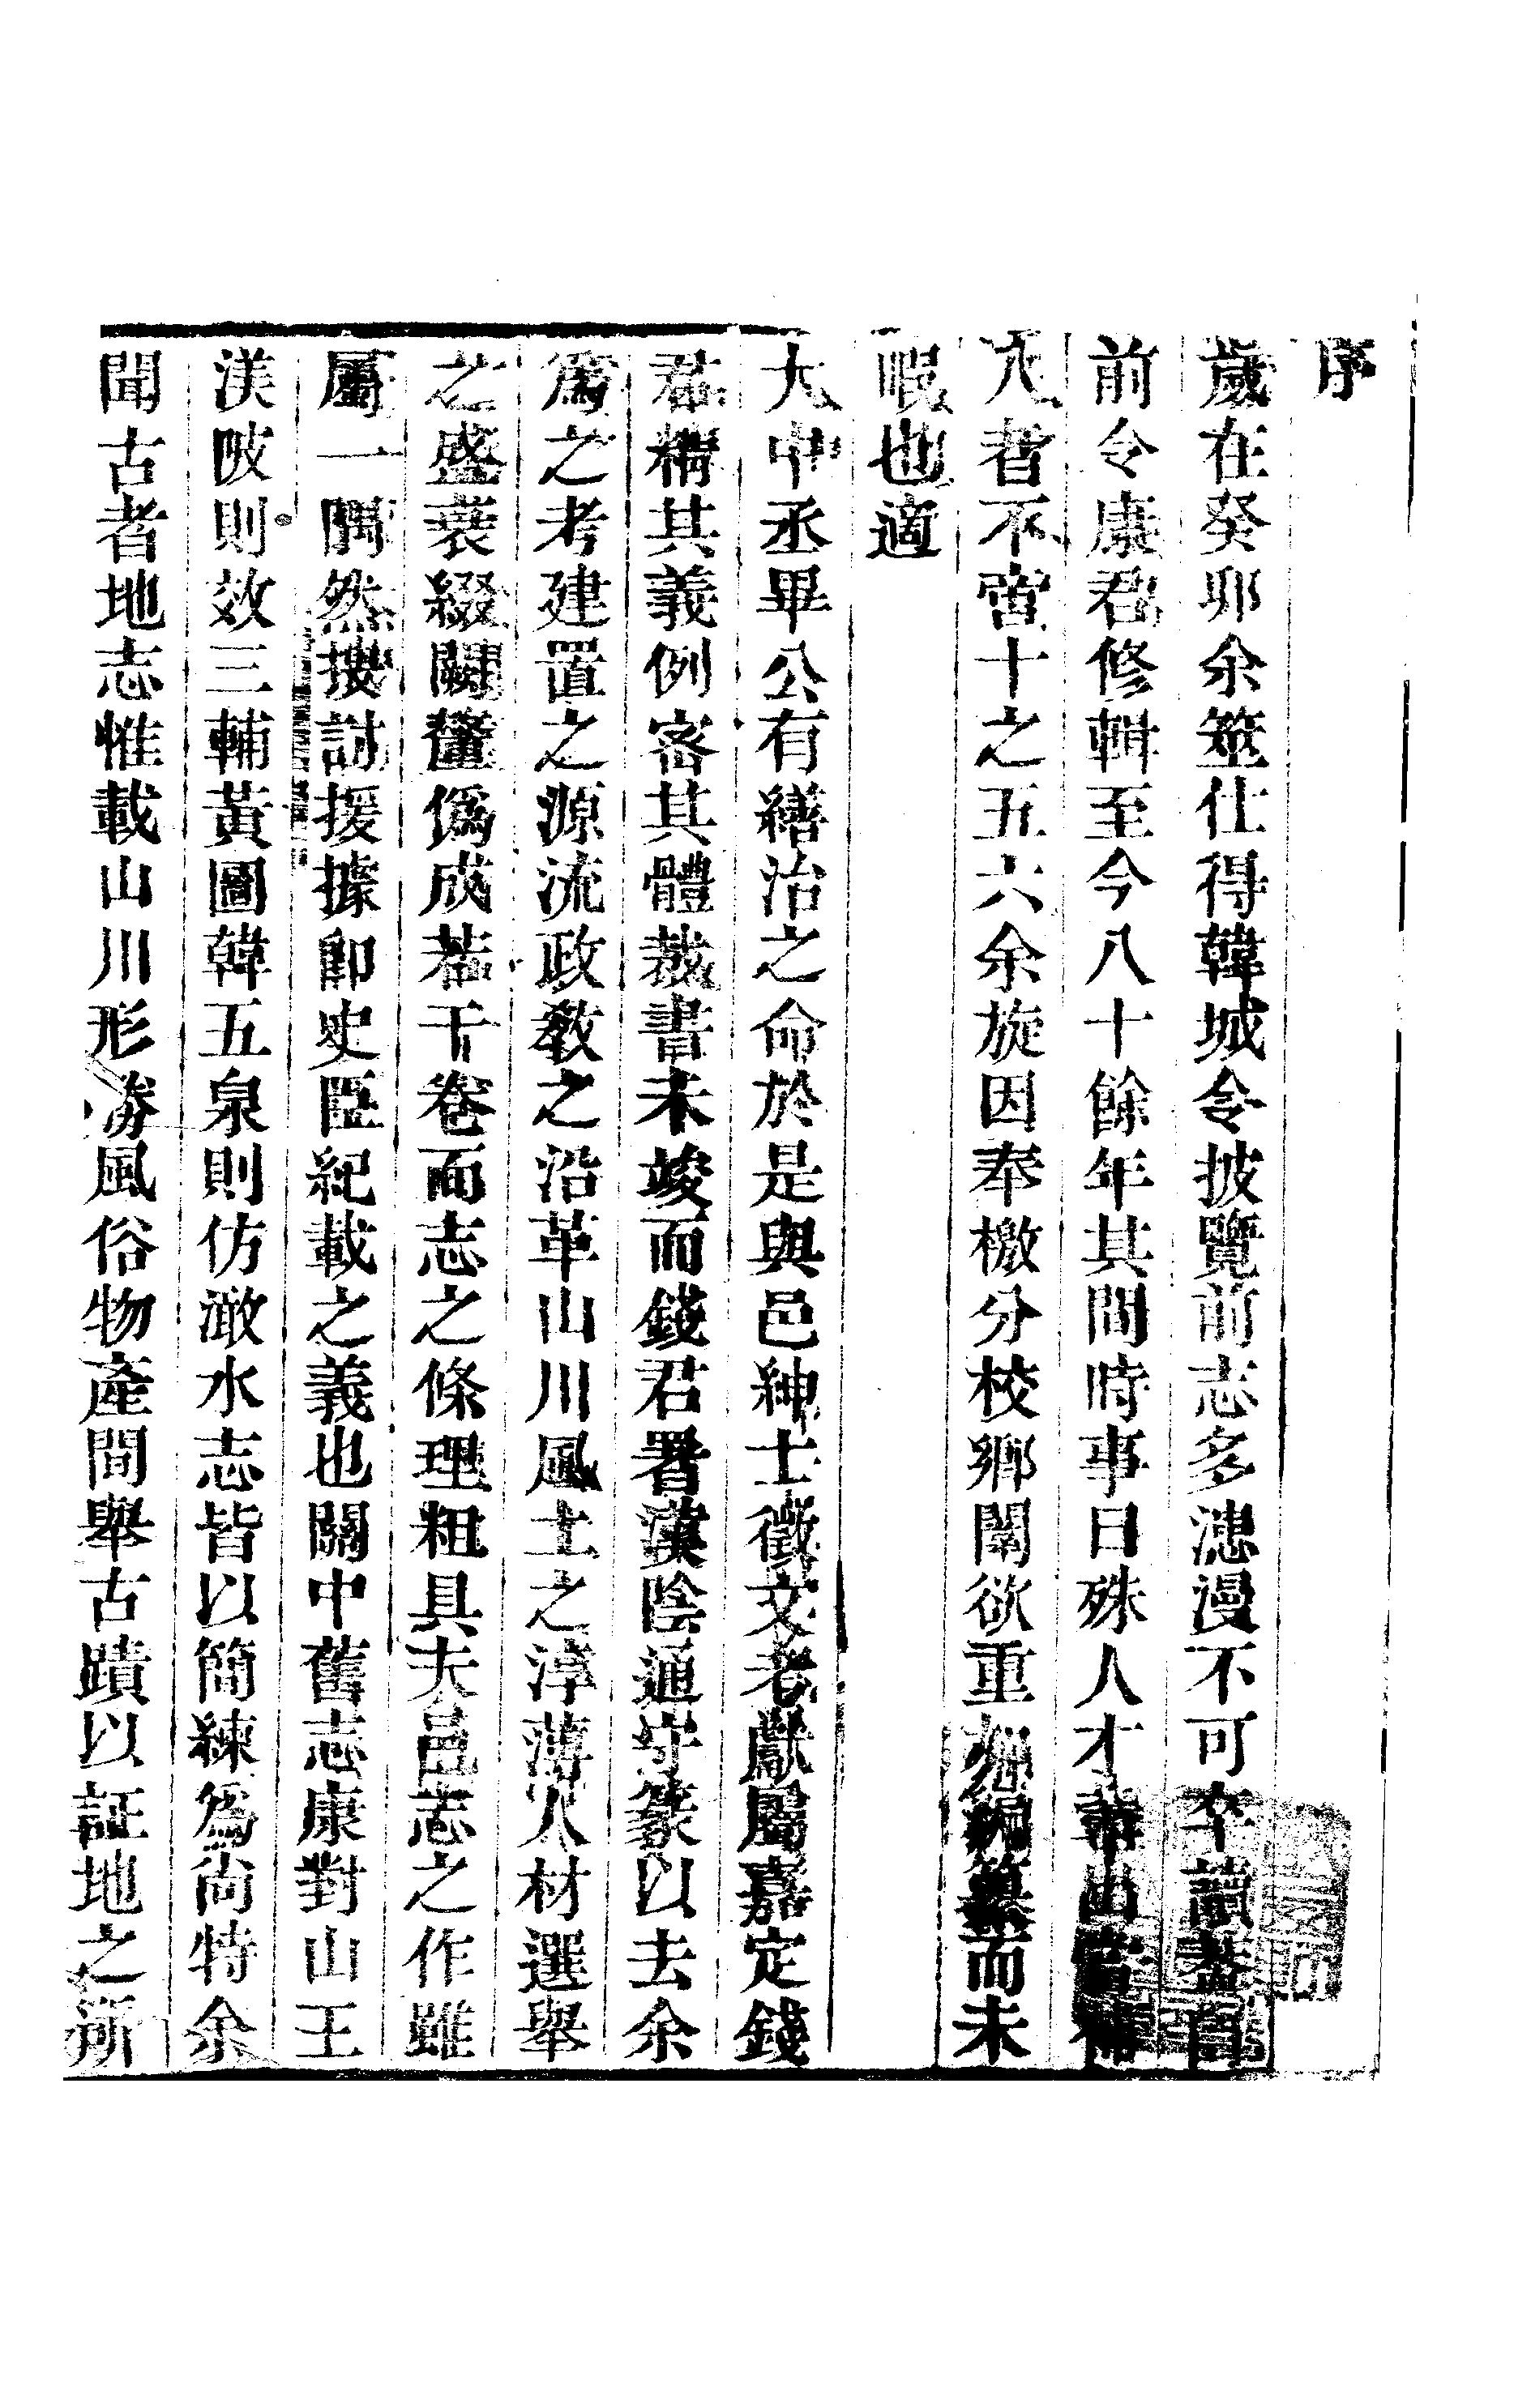 序
歲在癸卯余筮仕得韓城令披覽前志多漶漫不可卒讀蓋自
前令康君修輯至今八十餘年其間時事日殊人才輩出當補
入者不啻十之五六余旋因奉檄分校鄉闈欲重加編纂而未
暇也適
大中丞畢公有繕治之命於是與邑紳士徵文考獻屬嘉定錢
君精其義例密其體裁書未竣而錢君署漢陰通守篆以去余
爲之考建置之源流政教之沿革山川風土之淳薄人材選舉
之盛衰綴闕釐僞成若干卷而志之條理粗具夫邑志之作雖
屬一隅然搜討援據卽史臣紀載之義也關中舊志康對山王
渼陂則效三輔黃圖韓五泉則仿澉水志皆以簡練爲尚特余
聞古者地志惟載山川形勝風俗物產間舉古蹟以証地之所